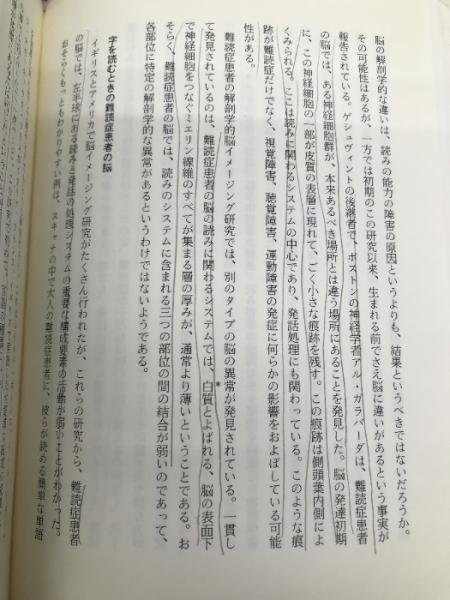 脳の解剖学的な違いは、読みの能力の障害の原因というよりも、結果というべきではないだろうか。
その可能性はあるが、一方では初期のこの研究以来、生まれる前でさえ脳に違いがあるという事実が
報告されている。ゲシュヴィントの後継者で、ボストンの神経学者アル・ガラバーダは、難読症患者
の脳では、ある神経細胞群が、本来あるべき場所とは違う場所にあることを発見した。脳の発達初期
に、この神経細胞の一部が皮質の表層に現れて、ごく小さな痕跡を残す。この痕跡は側頭葉内側によ
くみられる。ここは読みに関わるシステムの中心であり、発話処理にも関わっている。このような痕
跡が難読症だけでなく、視覚障害、聴覚障害、運動障害の発症に何らかの影響をおよぼしている可能
性がある。
難読症患者の解剖学的脳イメージング研究では、別のタイプの脳の異常が発見されている。一貫し
て発見されているのは、難読症患者の脳の読みに関わるシステムでは、白質*とよばれる、脳の表面下
で神経細胞をつなぐミエリン線維のすべてが集まる層の厚みが、通常より薄いということである。お
そらく、難読症患者の脳では、読みのシステムに含まれる三つの部位の間の結合が弱いのであって、
各部位に特定の解剖学的な異常があるというわけではないようである。
字を読むときの難読症患者の脳
イギリスとアメリカで脳イメージング研究がたくさん行われたが、これらの研究から、難読症患者
の脳では、左半球にある読みと発話の処理システムの重要な構成要素の活動が弱いことがわかった。
おそらくもっともわかりやすい例は、スキャナの中で大人の難読症患者に、彼らが読める簡単な単語